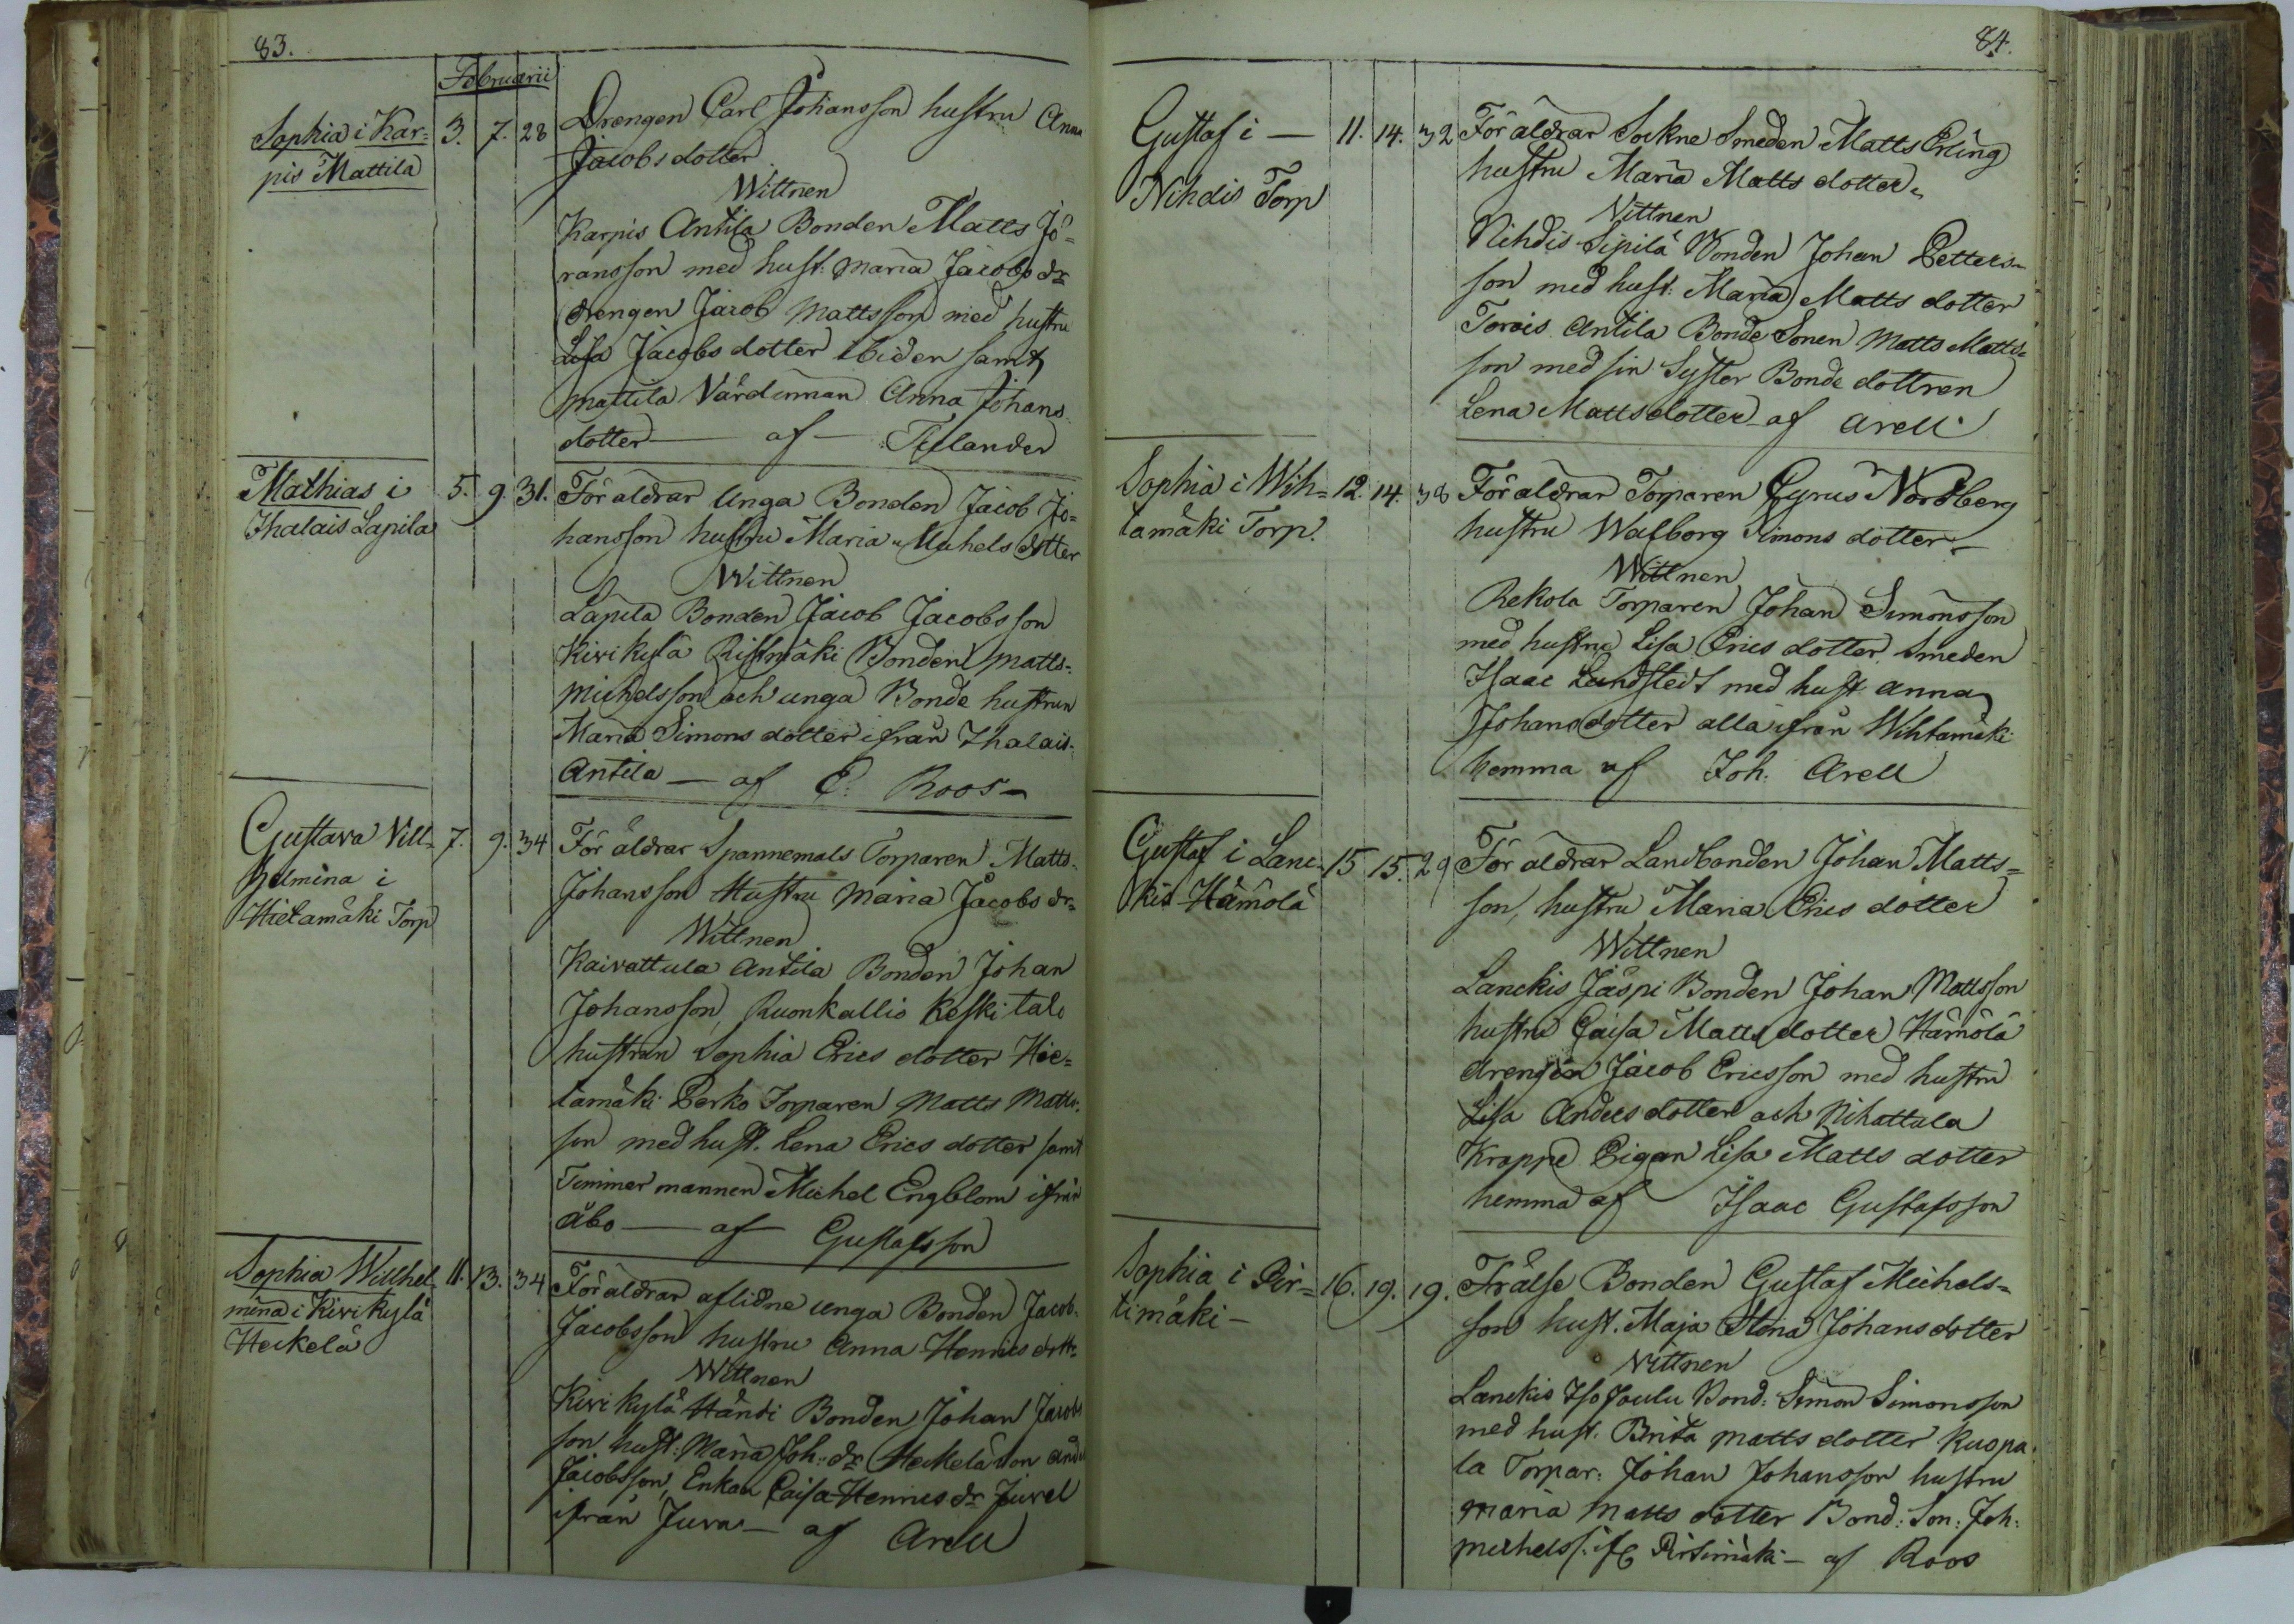 83.
Februarii
Sophia i Kar=
pis Mattila
3. 7. 28
Drengen Carl Johansson hustru Anna
Jacobsdotter
Wittnen
Karpis Antila Bonden Matts Jö=
ransson med hust: Maria Jacobs dr
drengen Jacob Mattsson med hustru
Lisa Jacobs dotter ibiden samt
Mattila Värdinnan Anna Johans
dotter — af —
Mathias i
Ihalais Lapila
5. 9. 31.
Föräldrar Unga Bonden Jacob Jo=
hansson hustru Maria Michels dotter
Wittnen
Lapila Bonden Jacob Jacobsson
Kivikylä Ristimäki Bonden Matts
Michelsson och unga Bonde hustrun
Maria Simons dotter ifrån Ihalais
Antila — af E. Roos —
Gustava Vill=
helmina i
Hietamäki Torp
7. 9. 34
Föräldrar Spannemals Torparen Matts
Johansson Hustru Maria Jacobs dr
Wittnen
Kaivattula Antila Bonden Johan
Johansson, Ruonkallio Keskitalo
hustrun Sophia Erics dotter Hie=
tamäki Perko Torparen Matts Matts
son med hust. Lena Erics dotter samt
Timmermannen Michel Engblom ifrån
åbo — af Gustafsson
Sophia Willhel
mina i Kivikylä
Heikelä
11. 13. 34
Föräldrar aflidne unga Bonden Jacob
Jacobsson hustru Anna Henrics dottr
Wittnen
Kivikylä Händi Bonden Johan Jacobs
son hust: Maria Joh: dr Heikelä
Jacobsson, Enkan Caisa Henrics dr
ifrån Juva — af Arell
84.
Gustaf i —
Nihdis Torp
11. 14. 32
Föräldrar Sockne Smeden Matts Erling
hustru Maria Matts dotter
Wittnen
Nihdis Sipilä Bonden Johan Petters
son med hust: Maria Matts dotter
Torvis Antila Bonde Sonen Matts Matts=
son med sin Syster Bonde dottren
Lena Mattsdotter af Arell
Sophia i Wih=
tamäki Torp.
12. 14. 38
Föräldrar Torparen Cyrus Nordberg
hustru Walborg Simons dotter —
Wittnen
Rekola Torparen Johan Simonsson
med hustru Lisa Erics dotter Smeden
Isaac Lundstedt med hust Anna
Johansdotter alla ifrån Wihtamäki
hemma af Joh: Arell
Gustaf i Lanc=
kis Hämölä
15 15. 29
Föräldrar Landbonden Johan Matts=
son, hustru Maria Erics dotter
Wittnen
Lanckis Jäspi Bonden Johan Mattsson
hustru Caisa Matts dotter Hämölä
drengen Jacob Ericsson med hustru
Lisa Anders dotter och Nihattula
Krappe Pigan Lisa Matts dotter
hemma af Isaac Gustafsson
Sophia i Pir=
timäki —
16. 19. 19.
Frälse Bonden Gustaf Michels=
son hust. Maja Stina Johans dotter
Wittnen
Lanckis Iso Joulu Bond: Simon Simonsson
med hust. Brita Matts dotter Kuopa
la Torpar: Johan Johansson hustru
Maria Matts dotter Bond: Son: Joh:
Michelss: Pirtimäki — af Roos